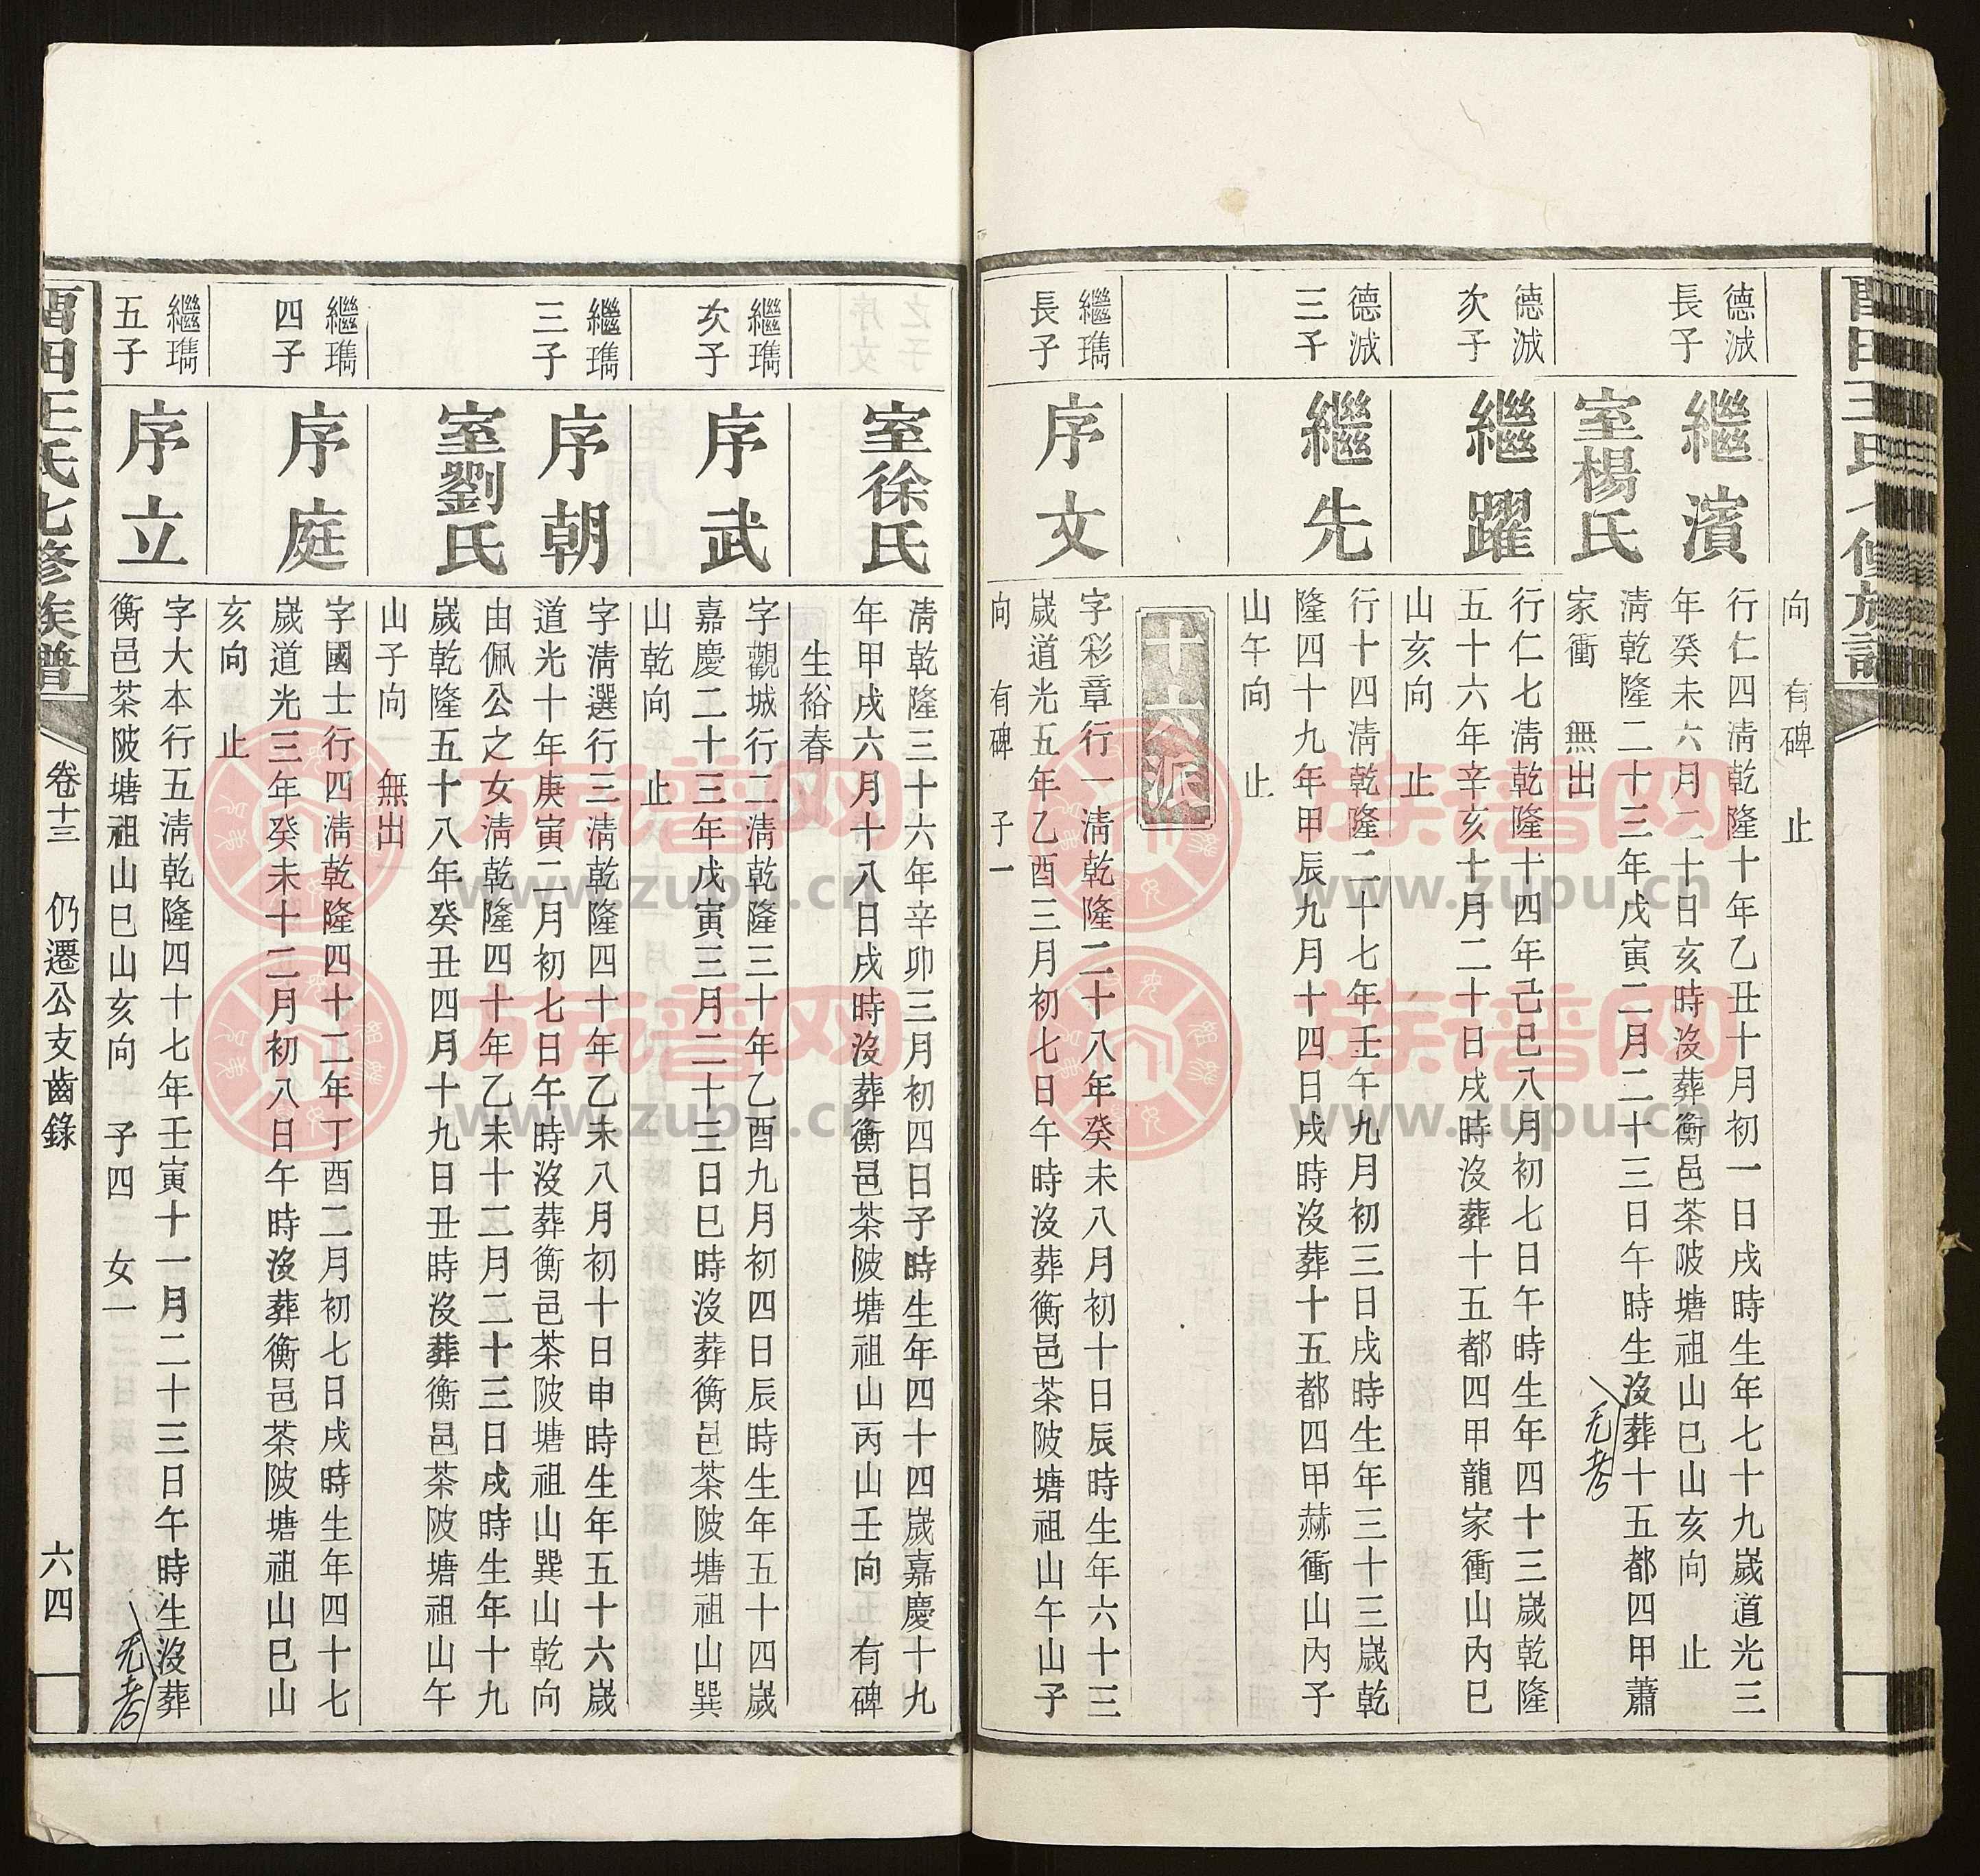 向　有碑　止
德減長子
繼濱
行仁四淸乾隆十年乙丑十月初一日戌時生年七十九歲道光三
年癸未六月二十日亥時沒葬衡邑茶陂塘祖山巳山亥向　止
室楊氏
淸乾隆二十三年戊寅二月二十三日午時生沒葬十五都四甲蕭
无考
家衝　無出
德減次子
繼躍
行仁七淸乾隆十四年己巳八月初七日午時生年四十三歲乾隆
五十六年辛亥十月二十日戌時沒葬十五都四甲龍家衝山內巳
山亥向　止
德減三子
繼先
行十四淸乾隆二十七年壬午九月初三日戌時生年三十三歲乾
隆四十九年甲辰九月十四日戌時沒葬十五都四甲赫衝山內子
山午向　止
十六派
繼瓗長子
序文
字彩章行一淸乾隆二十八年癸未八月初十日辰時生年六十三
歲道光五年乙酉三月初七日午時沒葬衡邑茶陂塘祖山午山子
向　有碑　子一
生裕春
室徐氏
淸乾隆三十六年辛卯三月初四日子時生年四十四歲嘉慶十九
年甲戌六月十八日戌時沒葬衡邑茶陂塘祖山丙山壬向　有碑
繼瓗次子
序武
字觀城行二淸乾隆三十年乙酉九月初四日辰時生年五十四歲
嘉慶二十三年戊寅三月二十三日巳時沒葬衡邑茶陂塘祖山巽
山乾向　止
繼瓗三子
序朝
字淸選行三淸乾隆四十年乙未八月初十日申時生年五十六歲
道光十年庚寅二月初七日午時沒葬衡邑茶陂塘祖山巽山乾向
室劉氏
由佩公之女淸乾隆四十年乙未十二月二十三日戌時生年十九
歲乾隆五十八年癸丑四月十九日丑時沒葬衡邑茶陂塘祖山午
山子向　無出
繼瓗四子
序庭
字國士行四淸乾隆四十二年丁酉二月初七日戌時生年四十七
歲道光三年癸未十二月初八日午時沒葬衡邑茶陂塘祖山巳山
亥向　止
繼瓗五子
序立
字大本行五淸乾隆四十七年壬寅十一月二十三日午時生沒葬
无考
衡邑茶陂塘祖山巳山亥向　子四　女一
田王氏七修族譜
卷十三　仍遷公支齒錄
六四
族譜网
www.zupu.cn
族譜网
www.zupu.cn
族譜网
www.zupu.cn
族譜网
www.zupu.cn